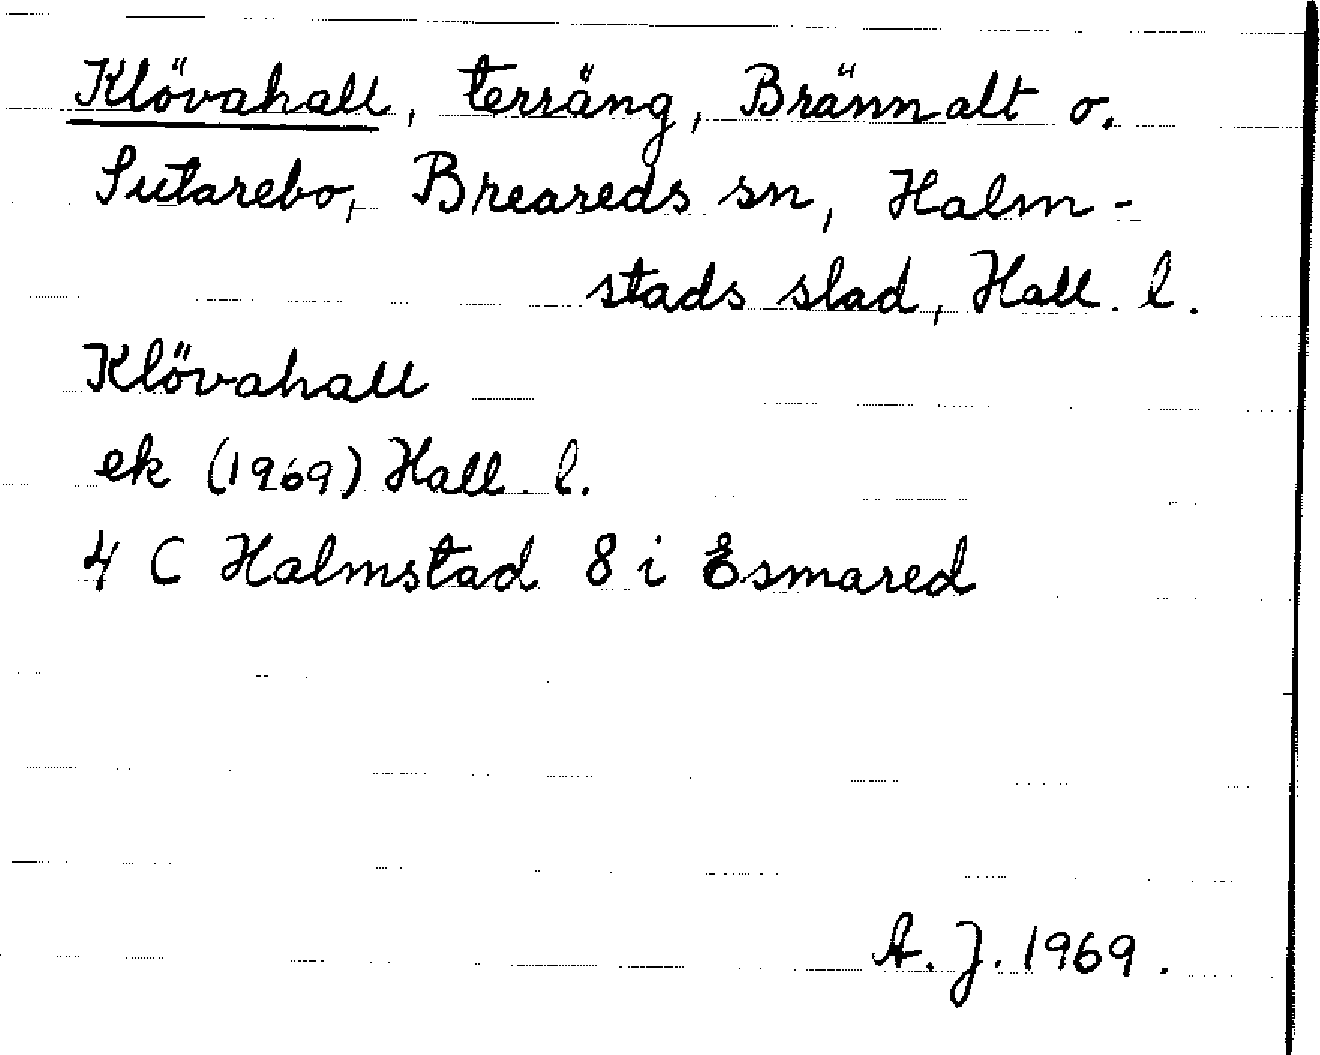 Klövahall, terräng, Brännalt o.
Sutarebo, Breareds sn, Halm-
stads slad, Hall. l.
Klövahall
ek (1969) Hall. l.
4 C Halmstad 8 i Esmared
A. J. 1969.